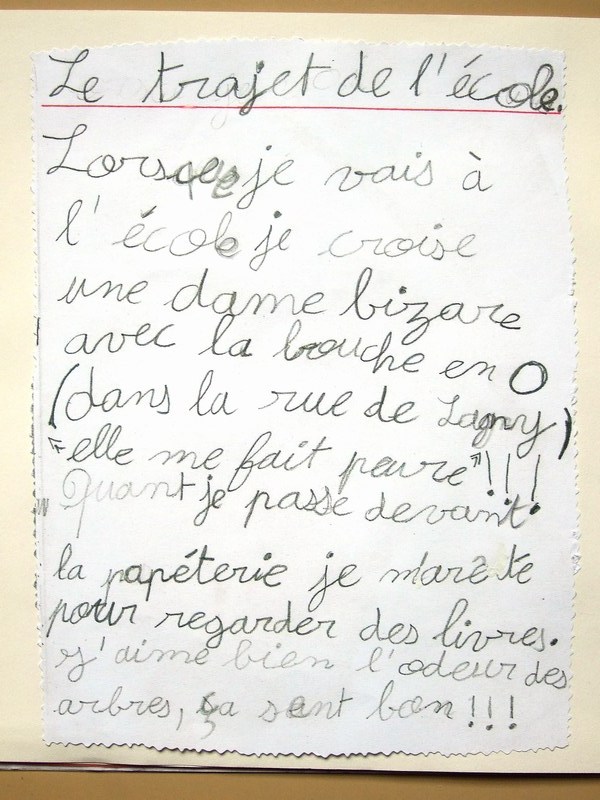 Le trajet de l'école.
Lorsque je vais à
l'école je croise
une dame bizare
avec la bouche en O
(dans la rue de Lagny)
"elle me fait peure"!!!
Quant je passe devant
la papéterie je m'arête
pour regarder des livres.
j'aime bien l'odeur des
arbres, ça sent bon !!!